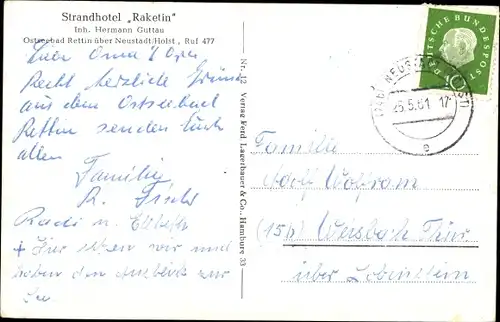 Strandhotel „Raketin"
Inh. Hermann Guttau
Ostseebad Rettin über Neustadt/Holst, Ruf 477
Liebe Oma & Opa
Recht herzliche Grüße
aus dem Ostseebad
Rettin senden Euch
allen
Familie
R.
Radi u.
+ Hier sitzen wir und
haben den Ausblick zur
See
Nr. 12 Verlag Ferd. Lagerbauer & Co., Hamburg 33
DEUTSCHE BUNDESPOST
NEUSTADT
25.5.61 17
e
Familie
Adolf Wolfram
(15b) Weisbach Thür.
über Lobenstein